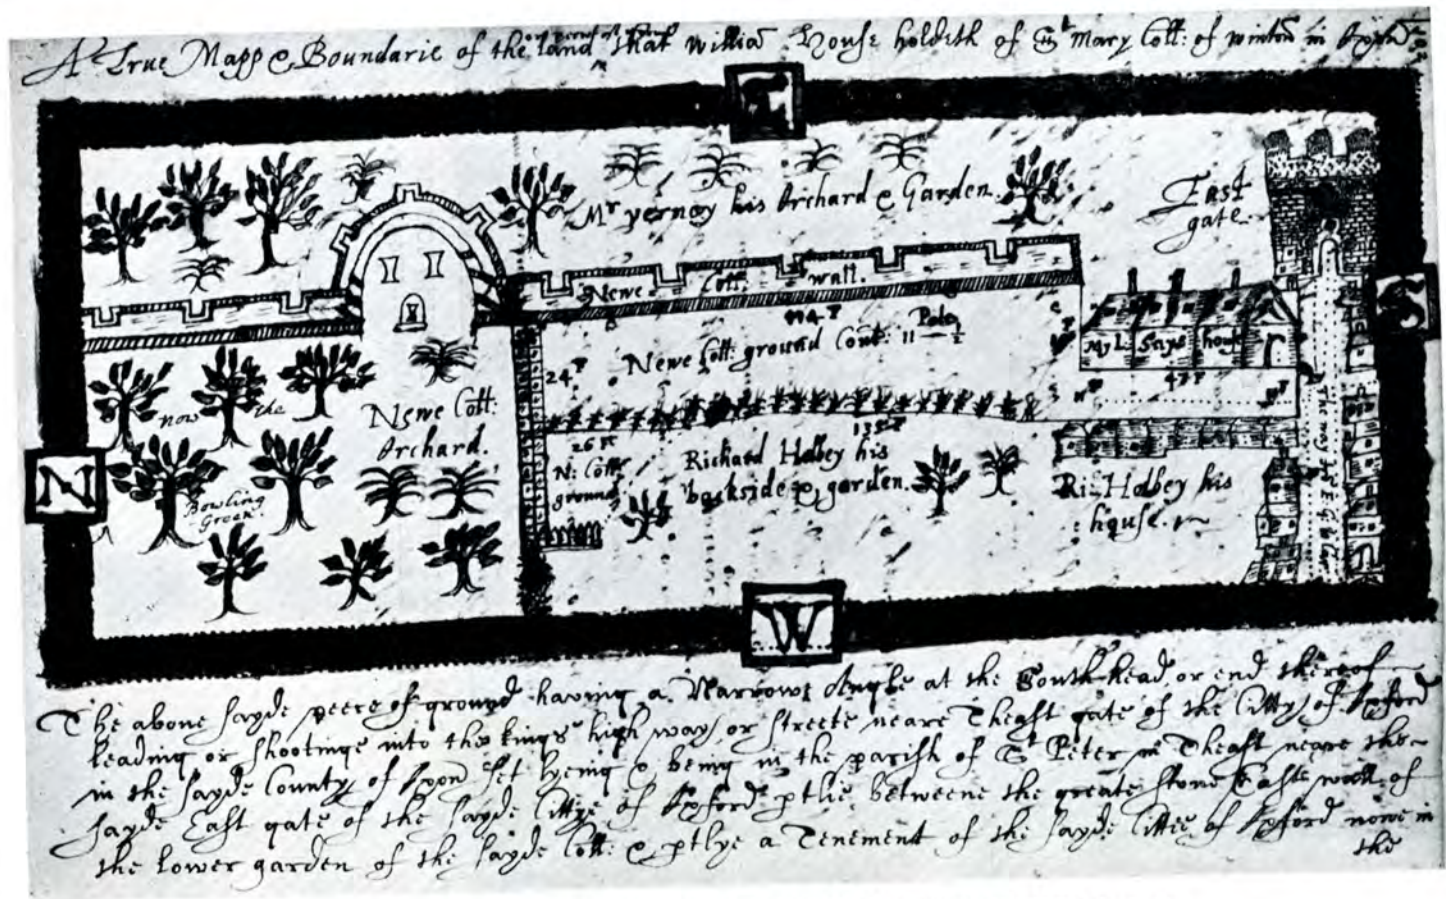 A True Mapp & Boundarie of the land that Willia House holdeth of St Mary Coll: of winton in Oxon
E
Mr yerney his Orchard & Garden.
East
gate.
Newe Coll. wall.
Pole
Newe Coll: ground Cont: 11 1/2
My L: Says house
47 F
24 F
now the
Newe Coll:
Orchard.
26 Ft
N: Coll:
ground
Richard Holbey his
backside & garden.
Ri: Holbey his
house.
Bowling
Green.
N
S
W
The above sayde peece of ground having a Narrowe Angle at the South head or end thereof
leading or shootinge into the kings high way or streete neare Theast gate of the Citty of Oxford
in the sayde County of Oxon set lyeing & being in the parish of St Peter in Theast neare the
sayde East gate of the sayde Cittye of Oxford ptlie betweene the greate stone East wall of
the lower garden of the sayde Coll: & ptlye a Tenement of the sayde Cittee of Oxford nowe in
the